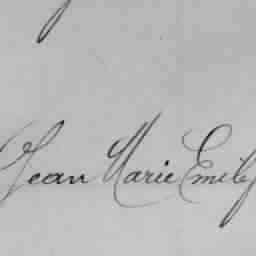 Jean Marie Emily